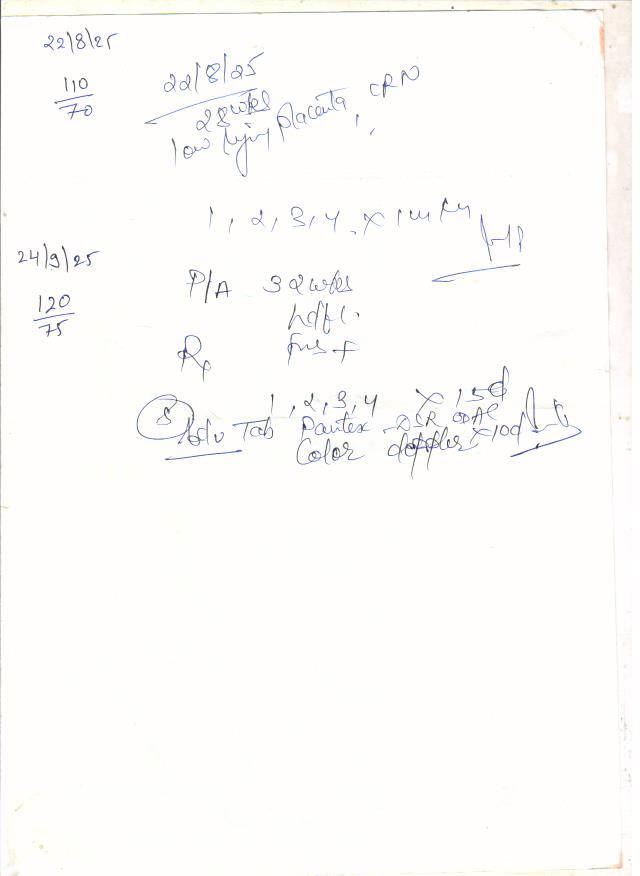 22/8/25
110
70
22/8/25
28 wks
low lying placenta,
1, 2, 3, 4. x
24/9/25
120
75
P/A 32 wks
Rx
1, 2, 3, 4 x 15d
5 Tab Pantex - DSR x 10d
Adv Color doppler